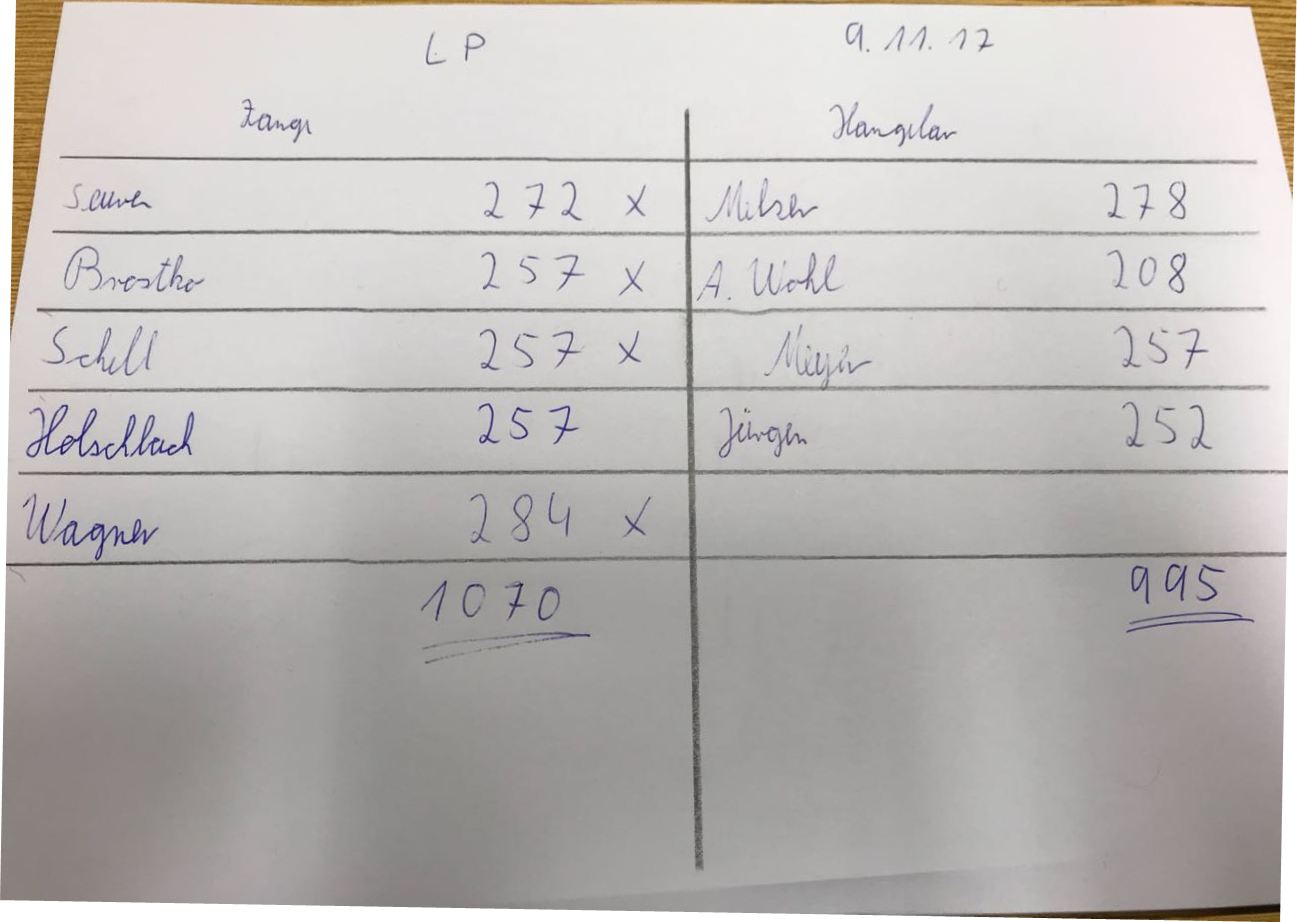 LP 9.11.17
Hangelar
272 x 278
Brostko 257 x A. Wohl 208
Schell 257 x Meyer 257
Holschbach 257 Jürgen 252
Wagner 284 x
1070 995